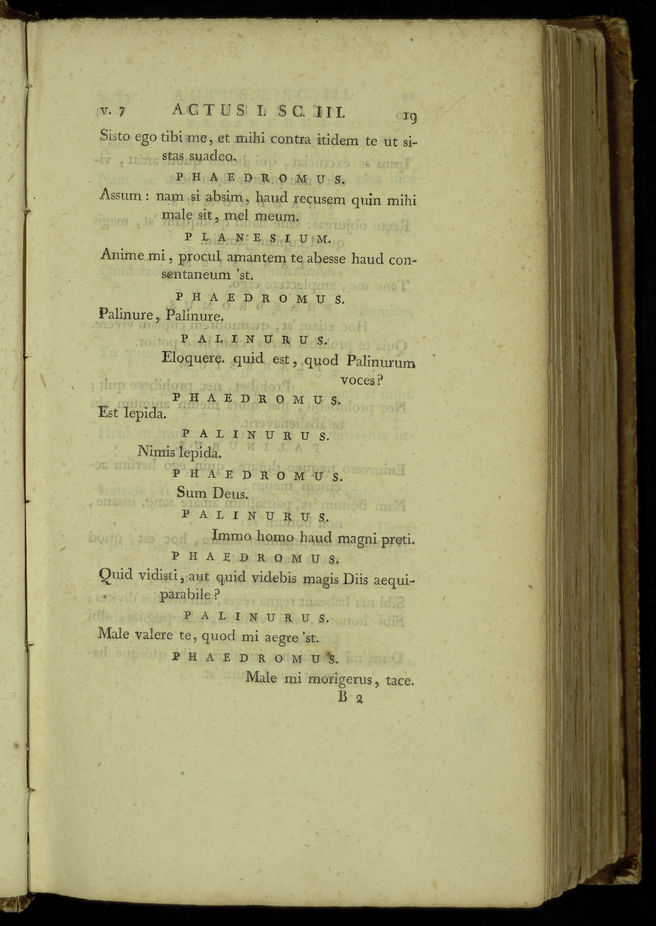 v. 7 ACTUS I. SC. III. 19
Sisto ego tibi me, et mihi contra itidem te ut si-
stas suadeo.
PHAEDROMUS.
Assum: nam si absim, haud recusem quin mihi
male sit, mel meum.
PLANESIUM.
Anime mi, procul amantem te abesse haud con-
sentaneum 'st.
PHAEDROMUS.
Palinure, Palinure.
PALINURUS.
Eloquere. quid est, quod Palinurum
voces?
PHAEDROMUS.
Est lepida.
PALINURUS.
Nimis lepida.
PHAEDROMUS.
Sum Deus.
PALINURUS.
Immo homo haud magni preti.
PHAEDROMUS.
Quid vidisti, aut quid videbis magis Diis aequi-
parabile?
PALINURUS.
Male valere te, quod mi aegre 'st.
PHAEDROMUS.
Male mi morigerus, tace.
B 2